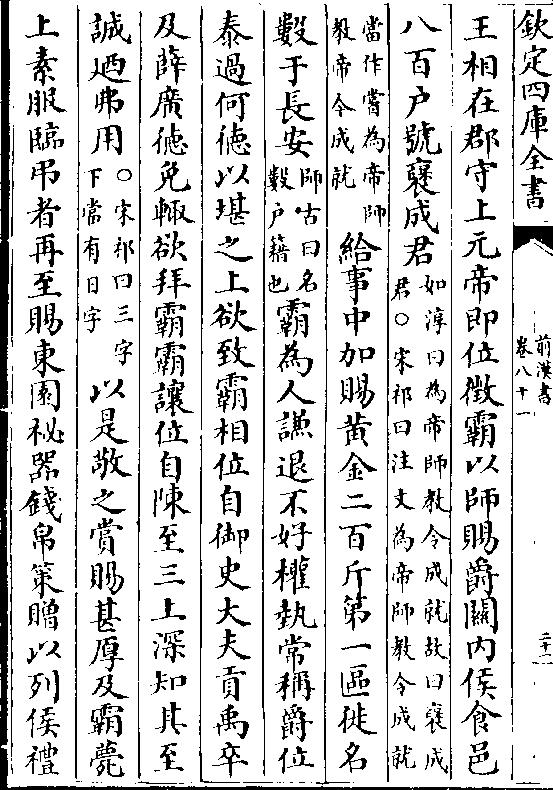 欽定四庫全書
前漢書
卷八十一
二十二
王相在郡守上元帝即位徵霸以師賜爵闗内侯食邑
八百户號襃成君如淳曰為帝師教令成就故曰襃成君○宋祁曰注文為帝師教令成就
當作嘗為帝師教帝令成就給事中加賜黄金二百斤第一區徙名
數于長安師古曰名數户籍也霸為人謙退不好權埶常稱爵位
泰過何德以堪之上欲致霸相位自御史大夫貢禹卒
及薛廣徳免輙欲拜霸霸讓位自陳至三上深知其至
誠廼弗用○宋祁曰三字下當有日字以是敬之賞賜甚厚及霸薨
上素服臨弔者再至賜東園祕器錢帛策贈以列侯禮